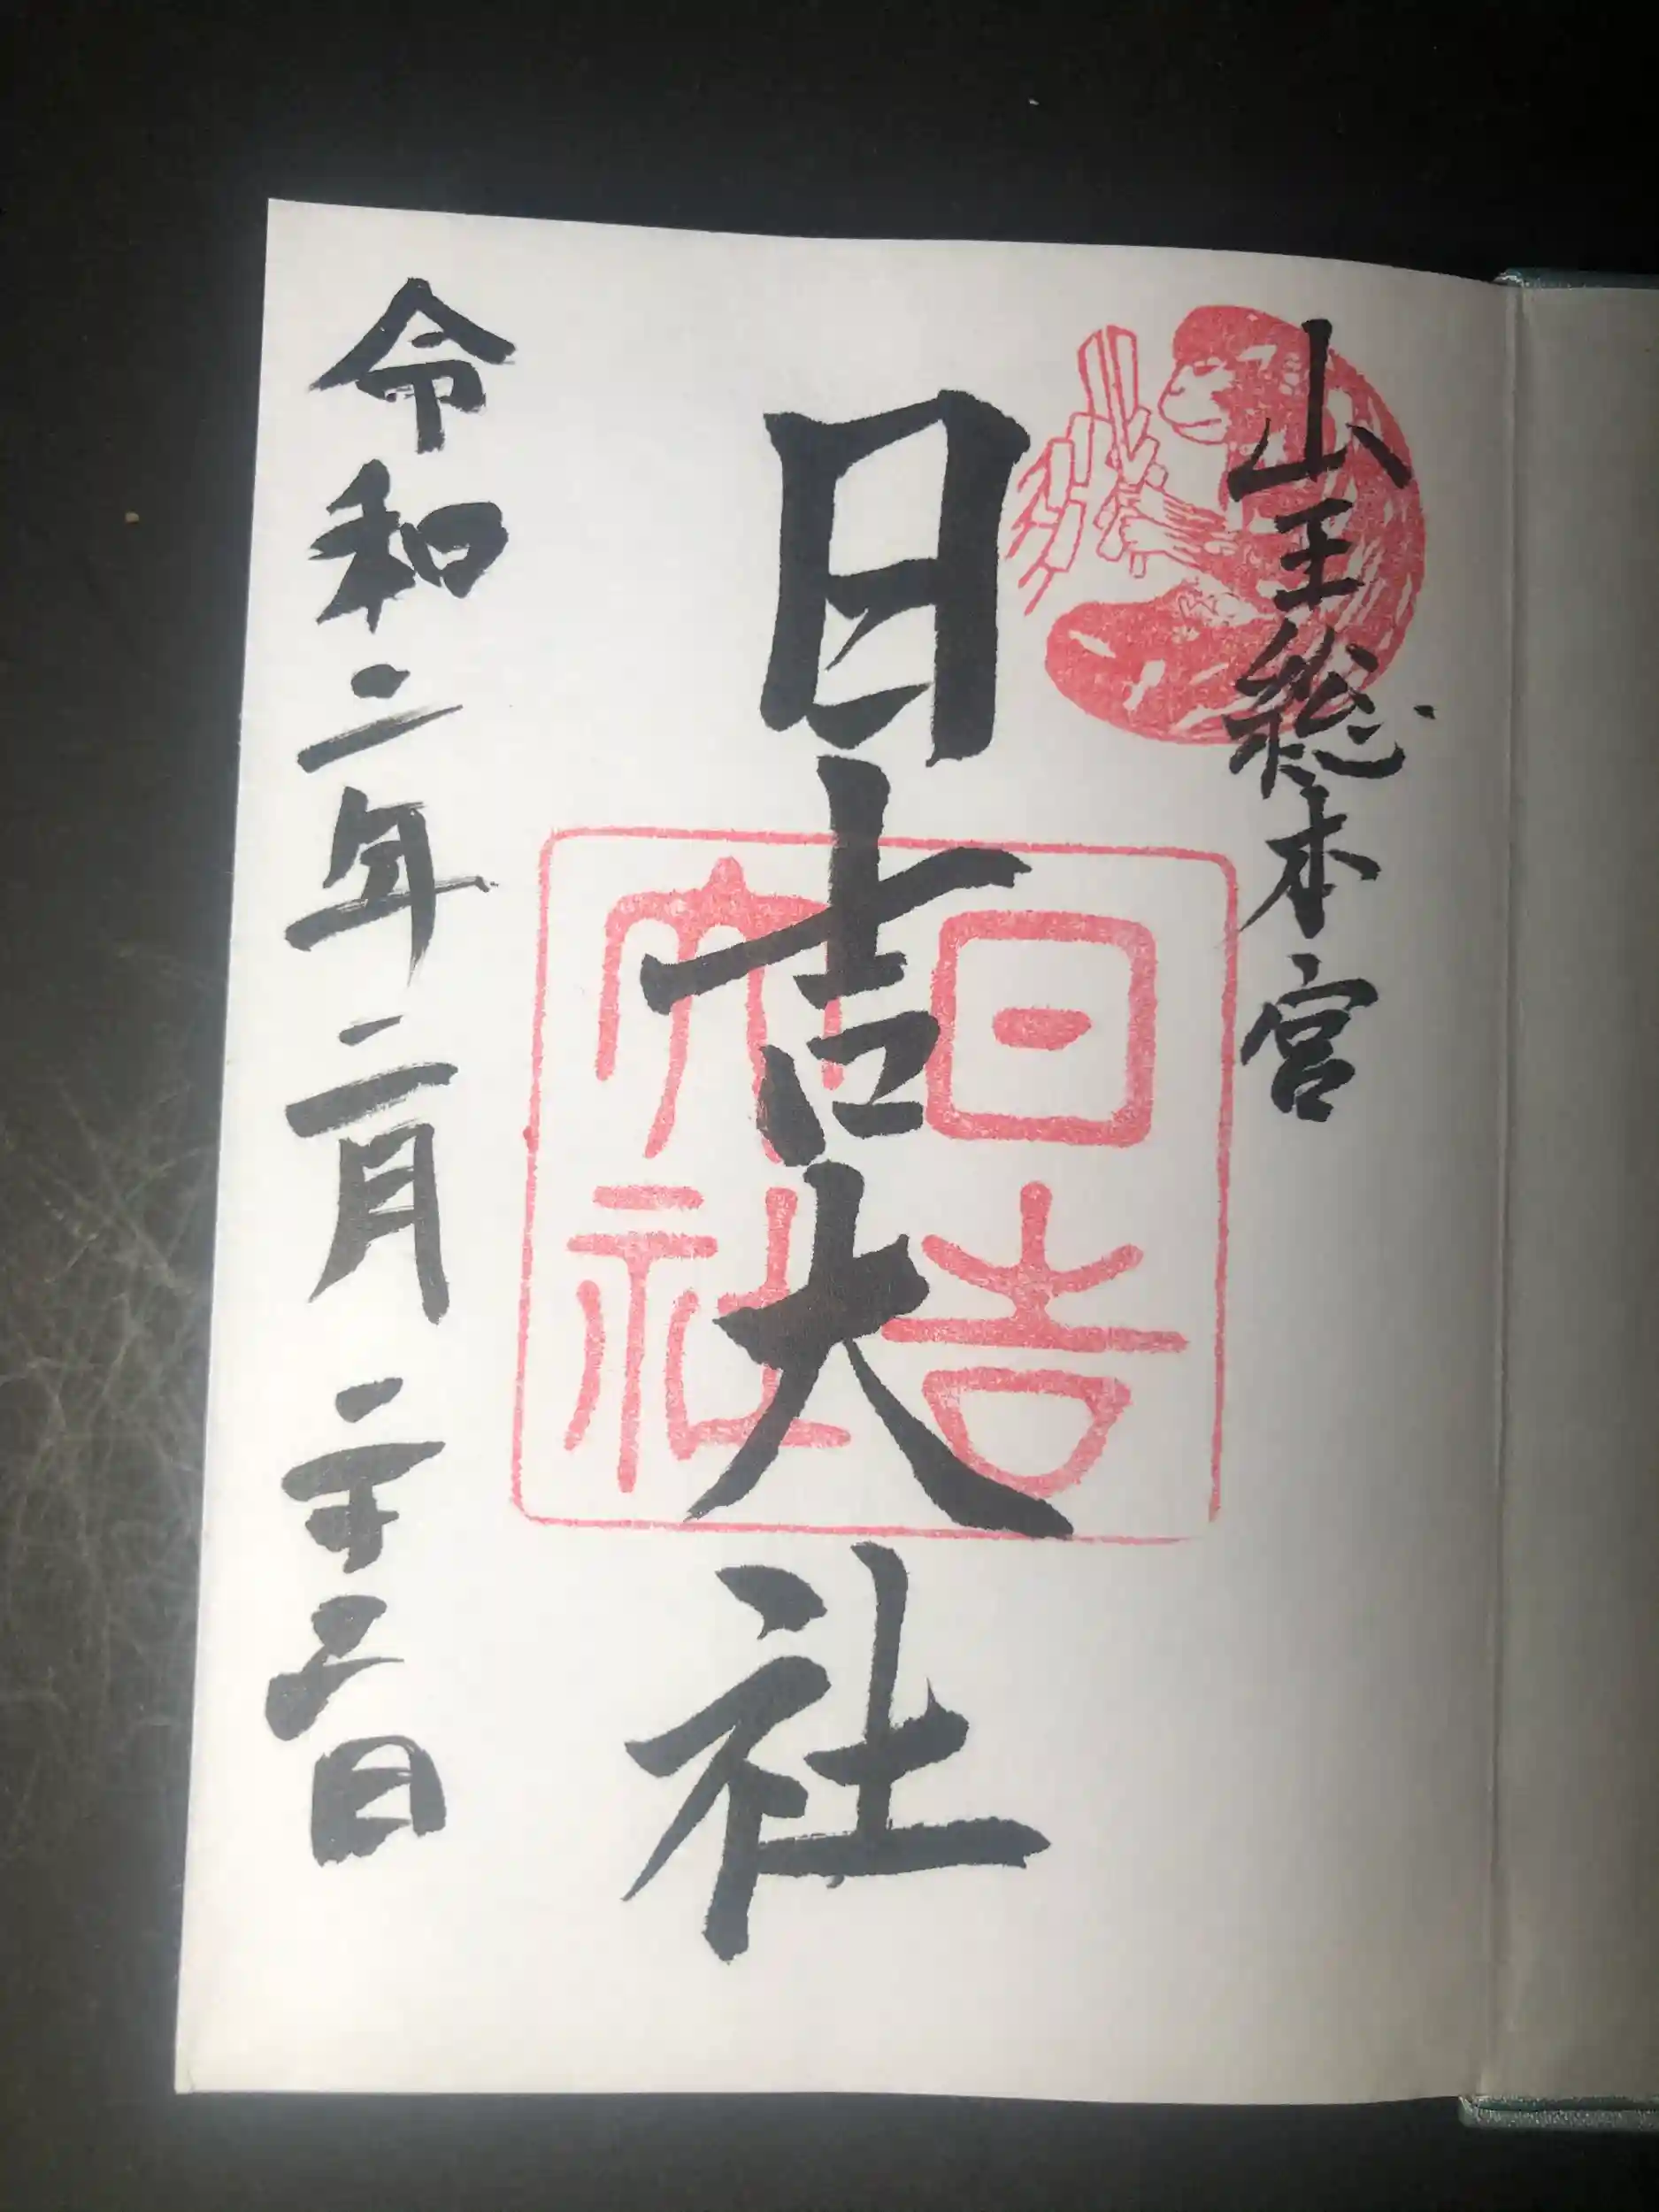 山王総本宮
日吉大社
日吉
大社
令和二年二月二十三日